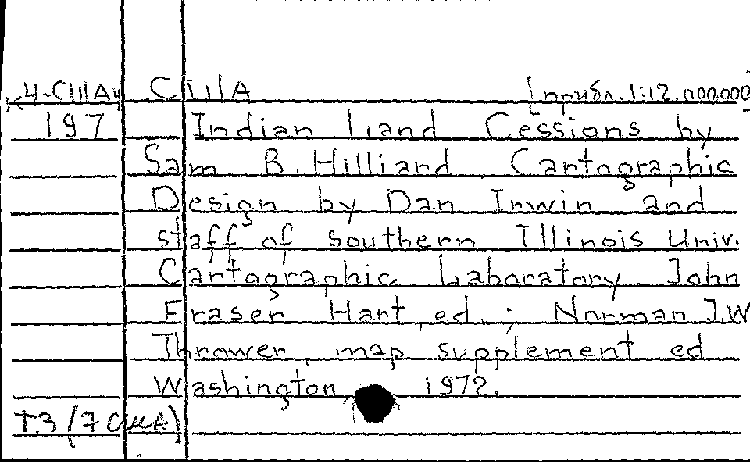 К4-США4 США [прибл. 1:12.000.000]
197 Indian Land Cessions by
Sam B. Hilliard. Cartographic
Design by Dan Irwin and
staff of southern Illinois Univ.
Cartographic Laboratory John
Fraser Hart, ed.; Norman J.W
Thrower, map supplement ed
Washington, 1972.
Т3/7США)